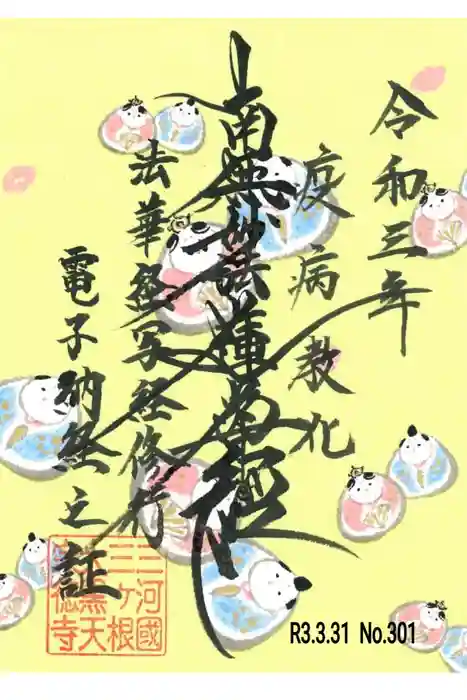 令和三年
疫病教化
南無妙法蓮華経
法華経写経修行
電子納経之証
三河國
三ヶ根
黒天
徳寺
R3.3.31 No.301